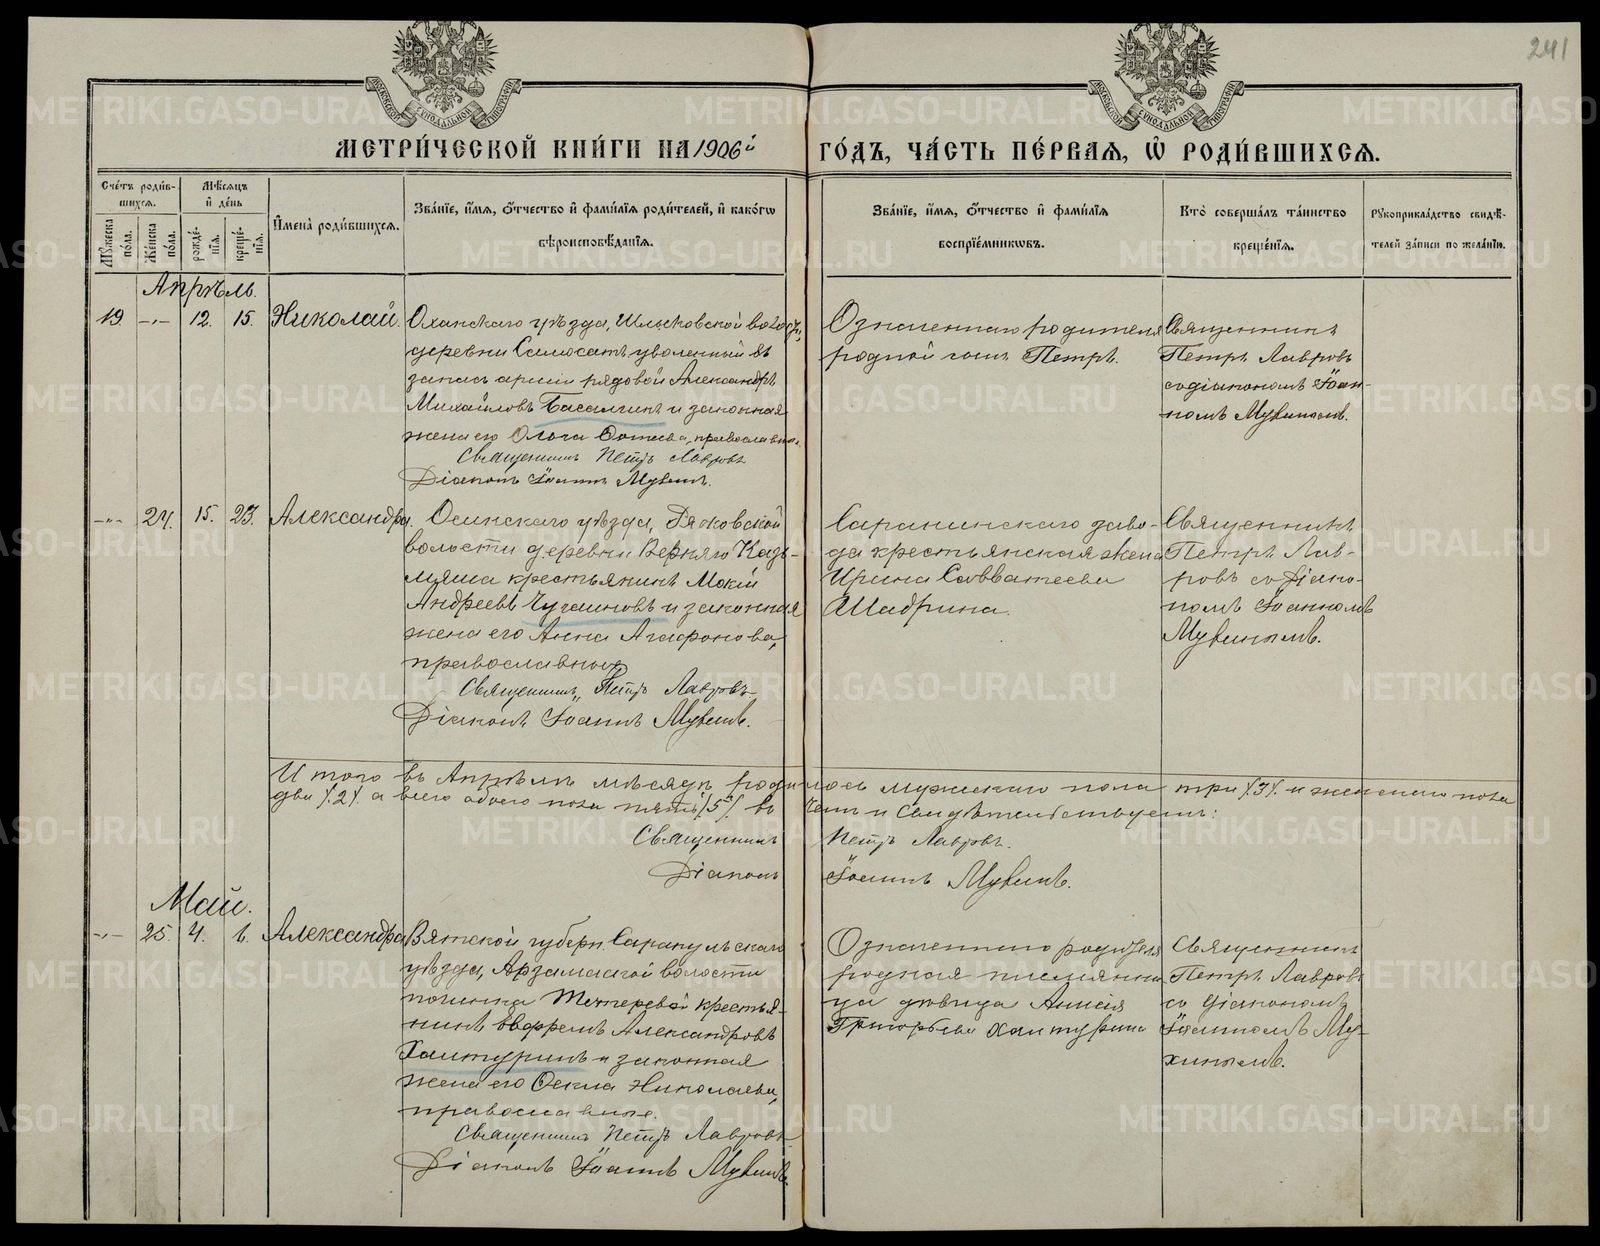 241
МЕТРИЧЕСКОЙ КНИГИ НА 1906й ГОДЪ, ЧАСТЬ ПЕРВАЯ, Ѿ РОДИВШИХСЯ.
Счетъ родившихся.
Мужеска пола.
Женска пола.
Мѣсяцъ и день
рожденія.
крещенія.
Имена родившихся.
Званіе, имя, отчество и фамилія родителей, и какогѡ вѣроисповѣданія.
Званіе, имя, отчество и фамилія воспріемниковъ.
Кто совершалъ таинство крещенія.
Рукоприкладство свидѣтелей записи по желанію.
Апрѣль.
19. -"- 12. 15. Николай.
Оханскаго уѣзда,
деревни уволенный въ
запасъ арміи рядовой Александръ
Михайловъ и законная
жена его Ольга православные.
Священникъ Петръ Лавровъ
Діаконъ Іоаннъ Мухинъ.
Означеннаго родителя
родной сынъ Петръ.
Священникъ
Петръ Лавровъ
со діакономъ Іоан-
номъ Мухинымъ.
-"- 24. 15. 23. Александра.
Осинскаго уѣзда,
волости деревни Верхняго Кады-
мяша крестьянинъ Мокій
Андреевъ и законная
жена его Анна Агафонова,
православные
Священникъ Петръ Лавровъ
Діаконъ Іоаннъ Мухинъ.
Саранинскаго заво-
да крестьянская жена
Ирина Савватеева
Шадрина.
Священникъ
Петръ Лав-
ровъ со діако-
номъ Іоанномъ
Мухинымъ.
Итого въ Апрѣлѣ мѣсяцѣ родилось мужескаго пола три /3/ и женскаго пола
два /2/ а всего обоего пола пять /5/ въ чемъ и свидѣтельствуемъ:
Священникъ Петръ Лавровъ.
Діаконъ Іоаннъ Мухинъ.
Май.
-"- 25. 4. 6. Александра
Вятской губерн. Сарапульскаго
уѣзда, Арзамасской волости
починка Тетеревой крестья-
нинъ Ефремъ Александровъ
Халтуринъ и законная
жена его Ѳекла Николаева,
православные.
Священникъ Петръ Лавровъ
Діаконъ Іоаннъ Мухинъ.
Означеннаго родителя
родная племянни-
ца дѣвица Анисія
Григорьева Халтурина
Священникъ
Петръ Лавровъ
со діакономъ
Іоанномъ Му-
хинымъ.
METRIKI.GASO-URAL.RU